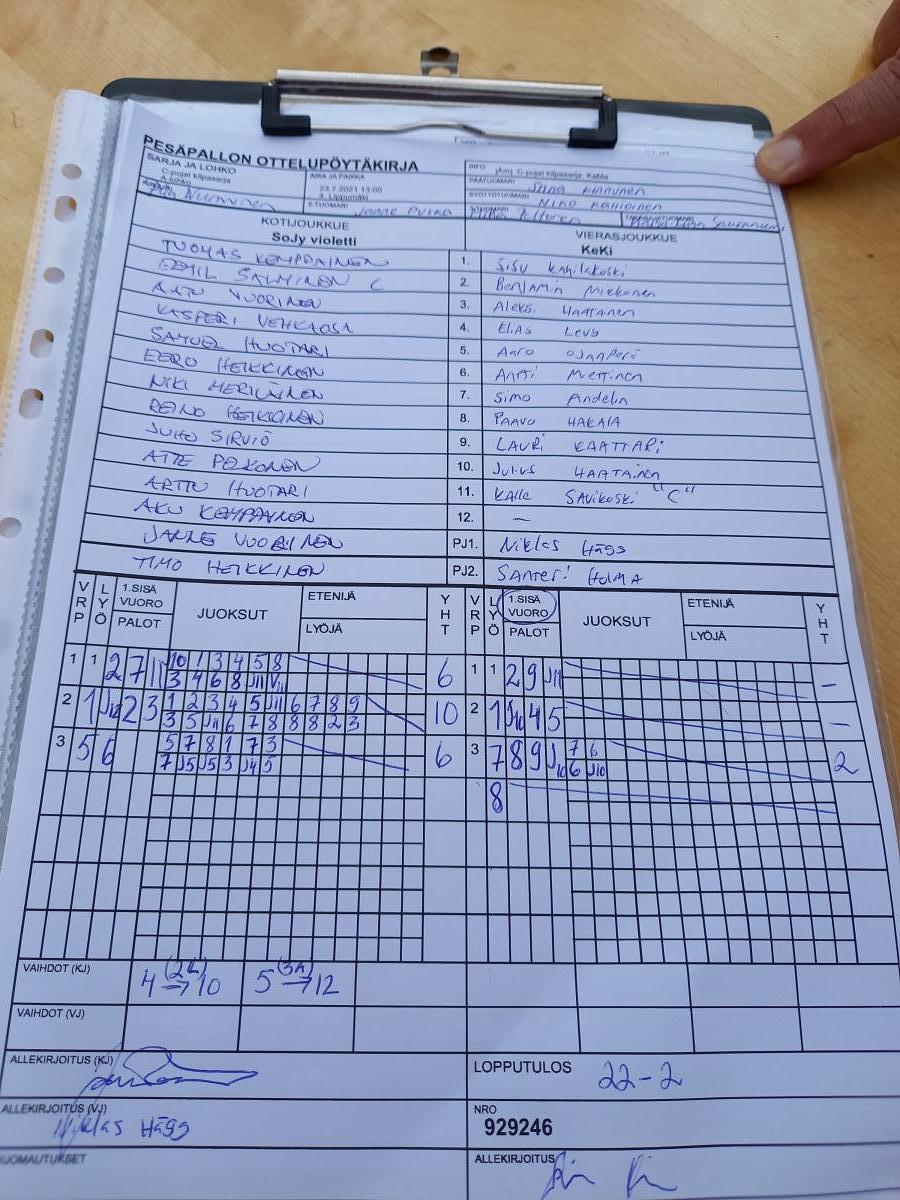 PESÄPALLON OTTELUPÖYTÄKIRJA
SARJA JA LOHKO
C-pojat kilpasarja
A-lohko
Numminen
AIKA JA PAIKKA
23.7.2021 13:00
Lippumäki
Janne Puska
INFO
C-pojat kilpasarja: KeMa
PÄÄTUOMARI
Kinnunen
SYÖTTÖTUOMARI Niko Kallioinen
KOTIJOUKKUE
SoJy violetti
VIERASJOUKKUE
KeKi
TUOMAS KEMPPAINEN 1. Sisu
EEMIL SALMINEN C 2. Benjamin Mikkonen
AATU VUORINEN 3. Aleksi HAATAINEN
KASPERI VEHKAOJA 4. Elias Levy
SAMUEL HUOTARI 5. Aaro OJANPERÄ
EERO HEIKKINEN 6. Antti Miettinen
NIKI MERILÄINEN 7. Simo Andelin
REINO HEIKKINEN 8. PAAVO HAKALA
JUHO SIRVIÖ 9. LAURI KAATTARI
ATTE PELKONEN 10. Julius HAATAINEN
ARTTU HUOTARI 11. Kalle Savikoski "C"
AKU KEMPPAINEN 12. —
JANNE VUORINEN PJ1. Niklas Hägg
TIMO HEIKKINEN PJ2. Santeri HOLMA
VRP LYÖ 1.SISÄ VUORO PALOT JUOKSUT ETENIJÄ LYÖJÄ YHT VRP LYÖ 1.SISÄ VUORO PALOT JUOKSUT ETENIJÄ LYÖJÄ YHT
1 1 2 7 10 1 3 4 5 8 6 1 1 2 9 –
3 4 6 8
2 1 2 3 1 2 3 4 5 6 7 8 9 10 2 1 4 5 –
3 5 6 7 8 8 8 2 3
3 5 6 5 7 8 1 7 3 6 3 7 8 9 7 6 2
7 J5 J5 3 J4 5 6 J10
8
VAIHDOT (KJ) 4 (2L) → 10 5 (3A) → 12
VAIHDOT (VJ)
ALLEKIRJOITUS (KJ)
LOPPUTULOS 22-2
ALLEKIRJOITUS (VJ)
Niklas Hägg
NRO
929246
HUOMAUTUKSET
ALLEKIRJOITUS